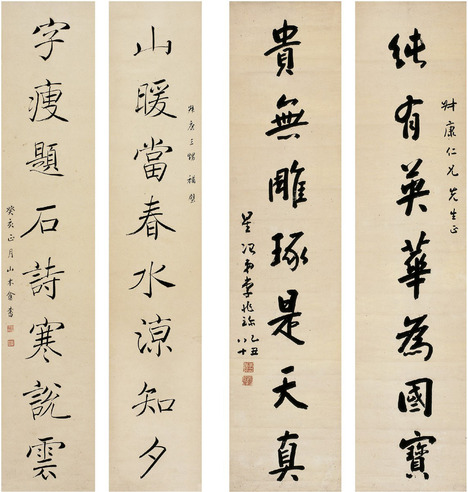 純有英華為國寶
叔康仁兄先生正
貴無雕琢是天真
星冶弟李兆珍
乙丑
八十
山暖當春水涼知夕
叔康三
字瘦題石詩寒說雲
癸亥正月山木
書